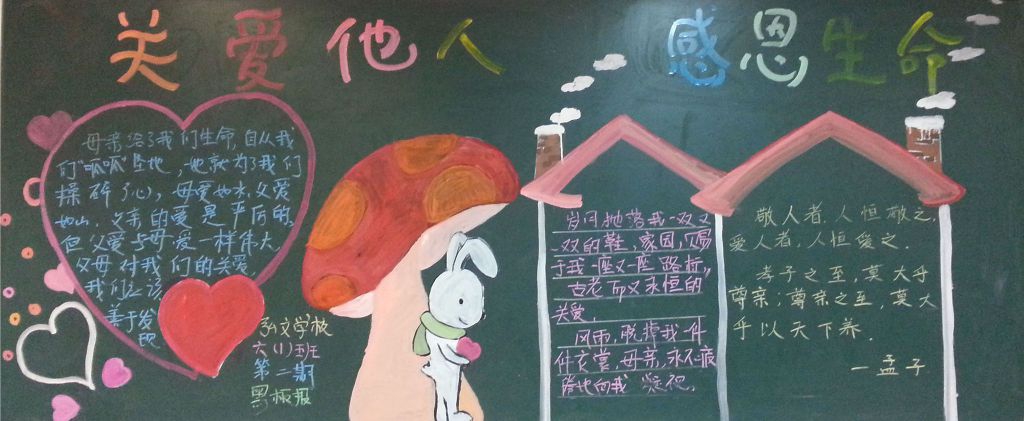 关爱他人 感恩生命
母亲给了我们生命,自从我
们"呱呱"坠地,她就为了我们
操碎了心,母爱如水,父爱
如山,父亲的爱是严厉的
但父爱与母爱一样伟大
父母对我们的关爱,
我们应该
善于发
现
弘文学校
六(1)班
第二期
黑板报
岁月抛落我一双又
一双的鞋,家园,赐
于我一座又一座路标,
古老而又永恒的
关爱,
风雨,脱掉我一件
件衣裳,母亲,永不疲
倦地向我凝视.
敬人者,人恒敬之,
爱人者,人恒爱之.
孝子之至,莫大乎
尊亲;尊亲之至,莫大
乎以天下养.
一孟子